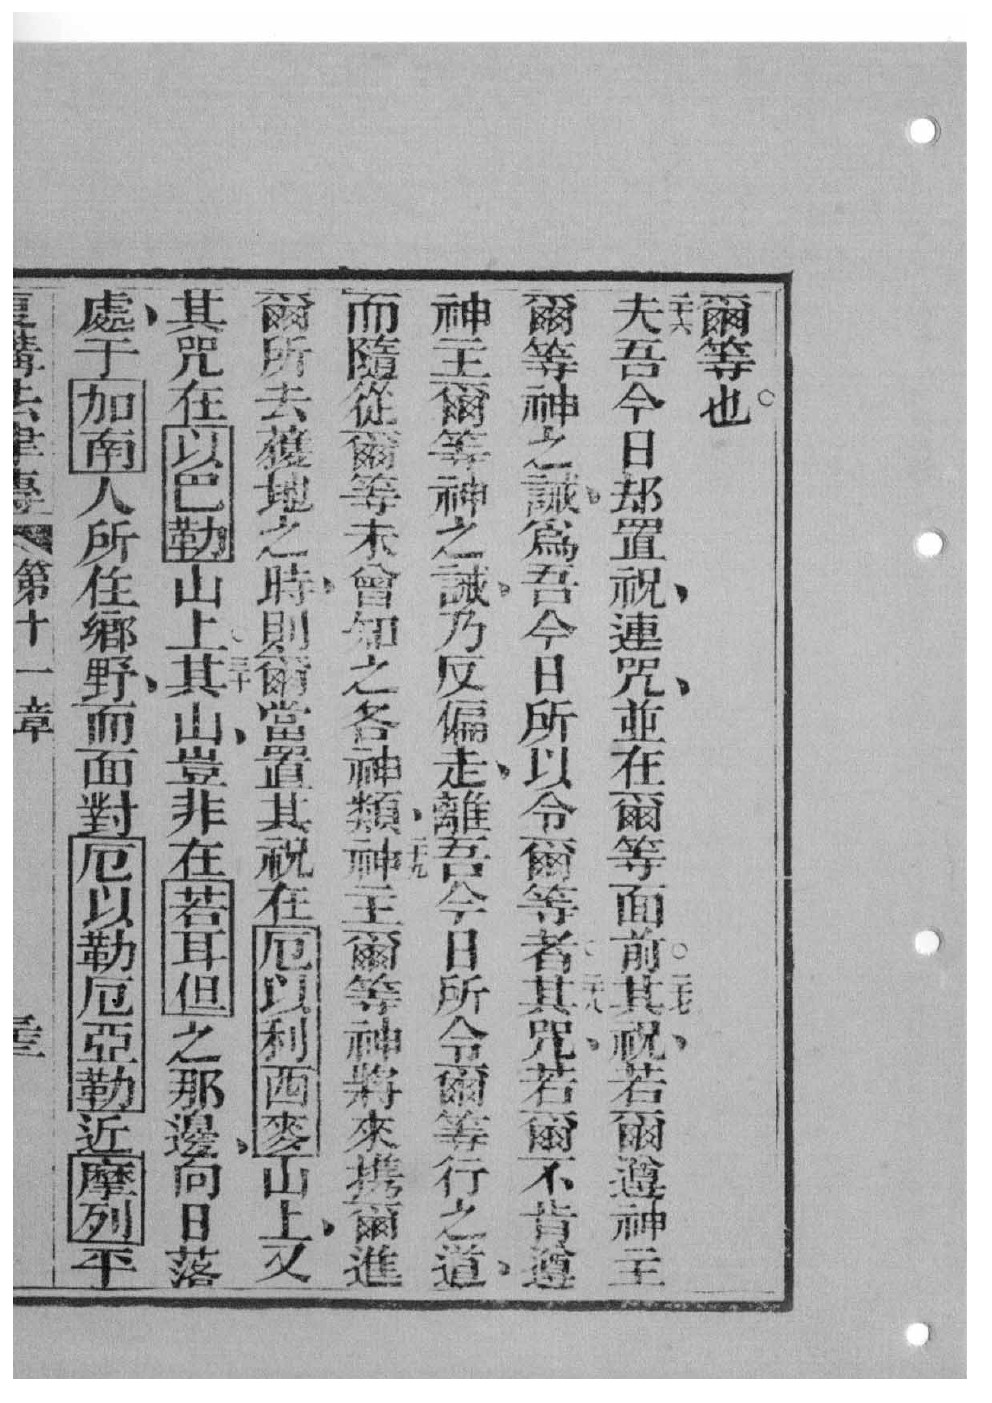 爾等也。
二十六夫吾今日却置祝、連咒、並在爾等面前。二十七其祝、若爾遵神主
爾等神之誡、爲吾今日所以令爾等者。二十八其咒、若爾不肯遵
神主爾等神之誡、乃反偏走、離吾今日所令爾等行之道、
而隨從爾等未曾知之各神類、二十九神主爾等神將來携爾進
爾所去獲地之時、則爾當置其祝在厄以利西麥山上、又
其咒在以巴勒山上。三十其山、豈非在若耳但之那邊、向日落
處、于加南人所住鄉野、而面對厄以勒厄亞勒近摩列平
復講法律傳 第十一章